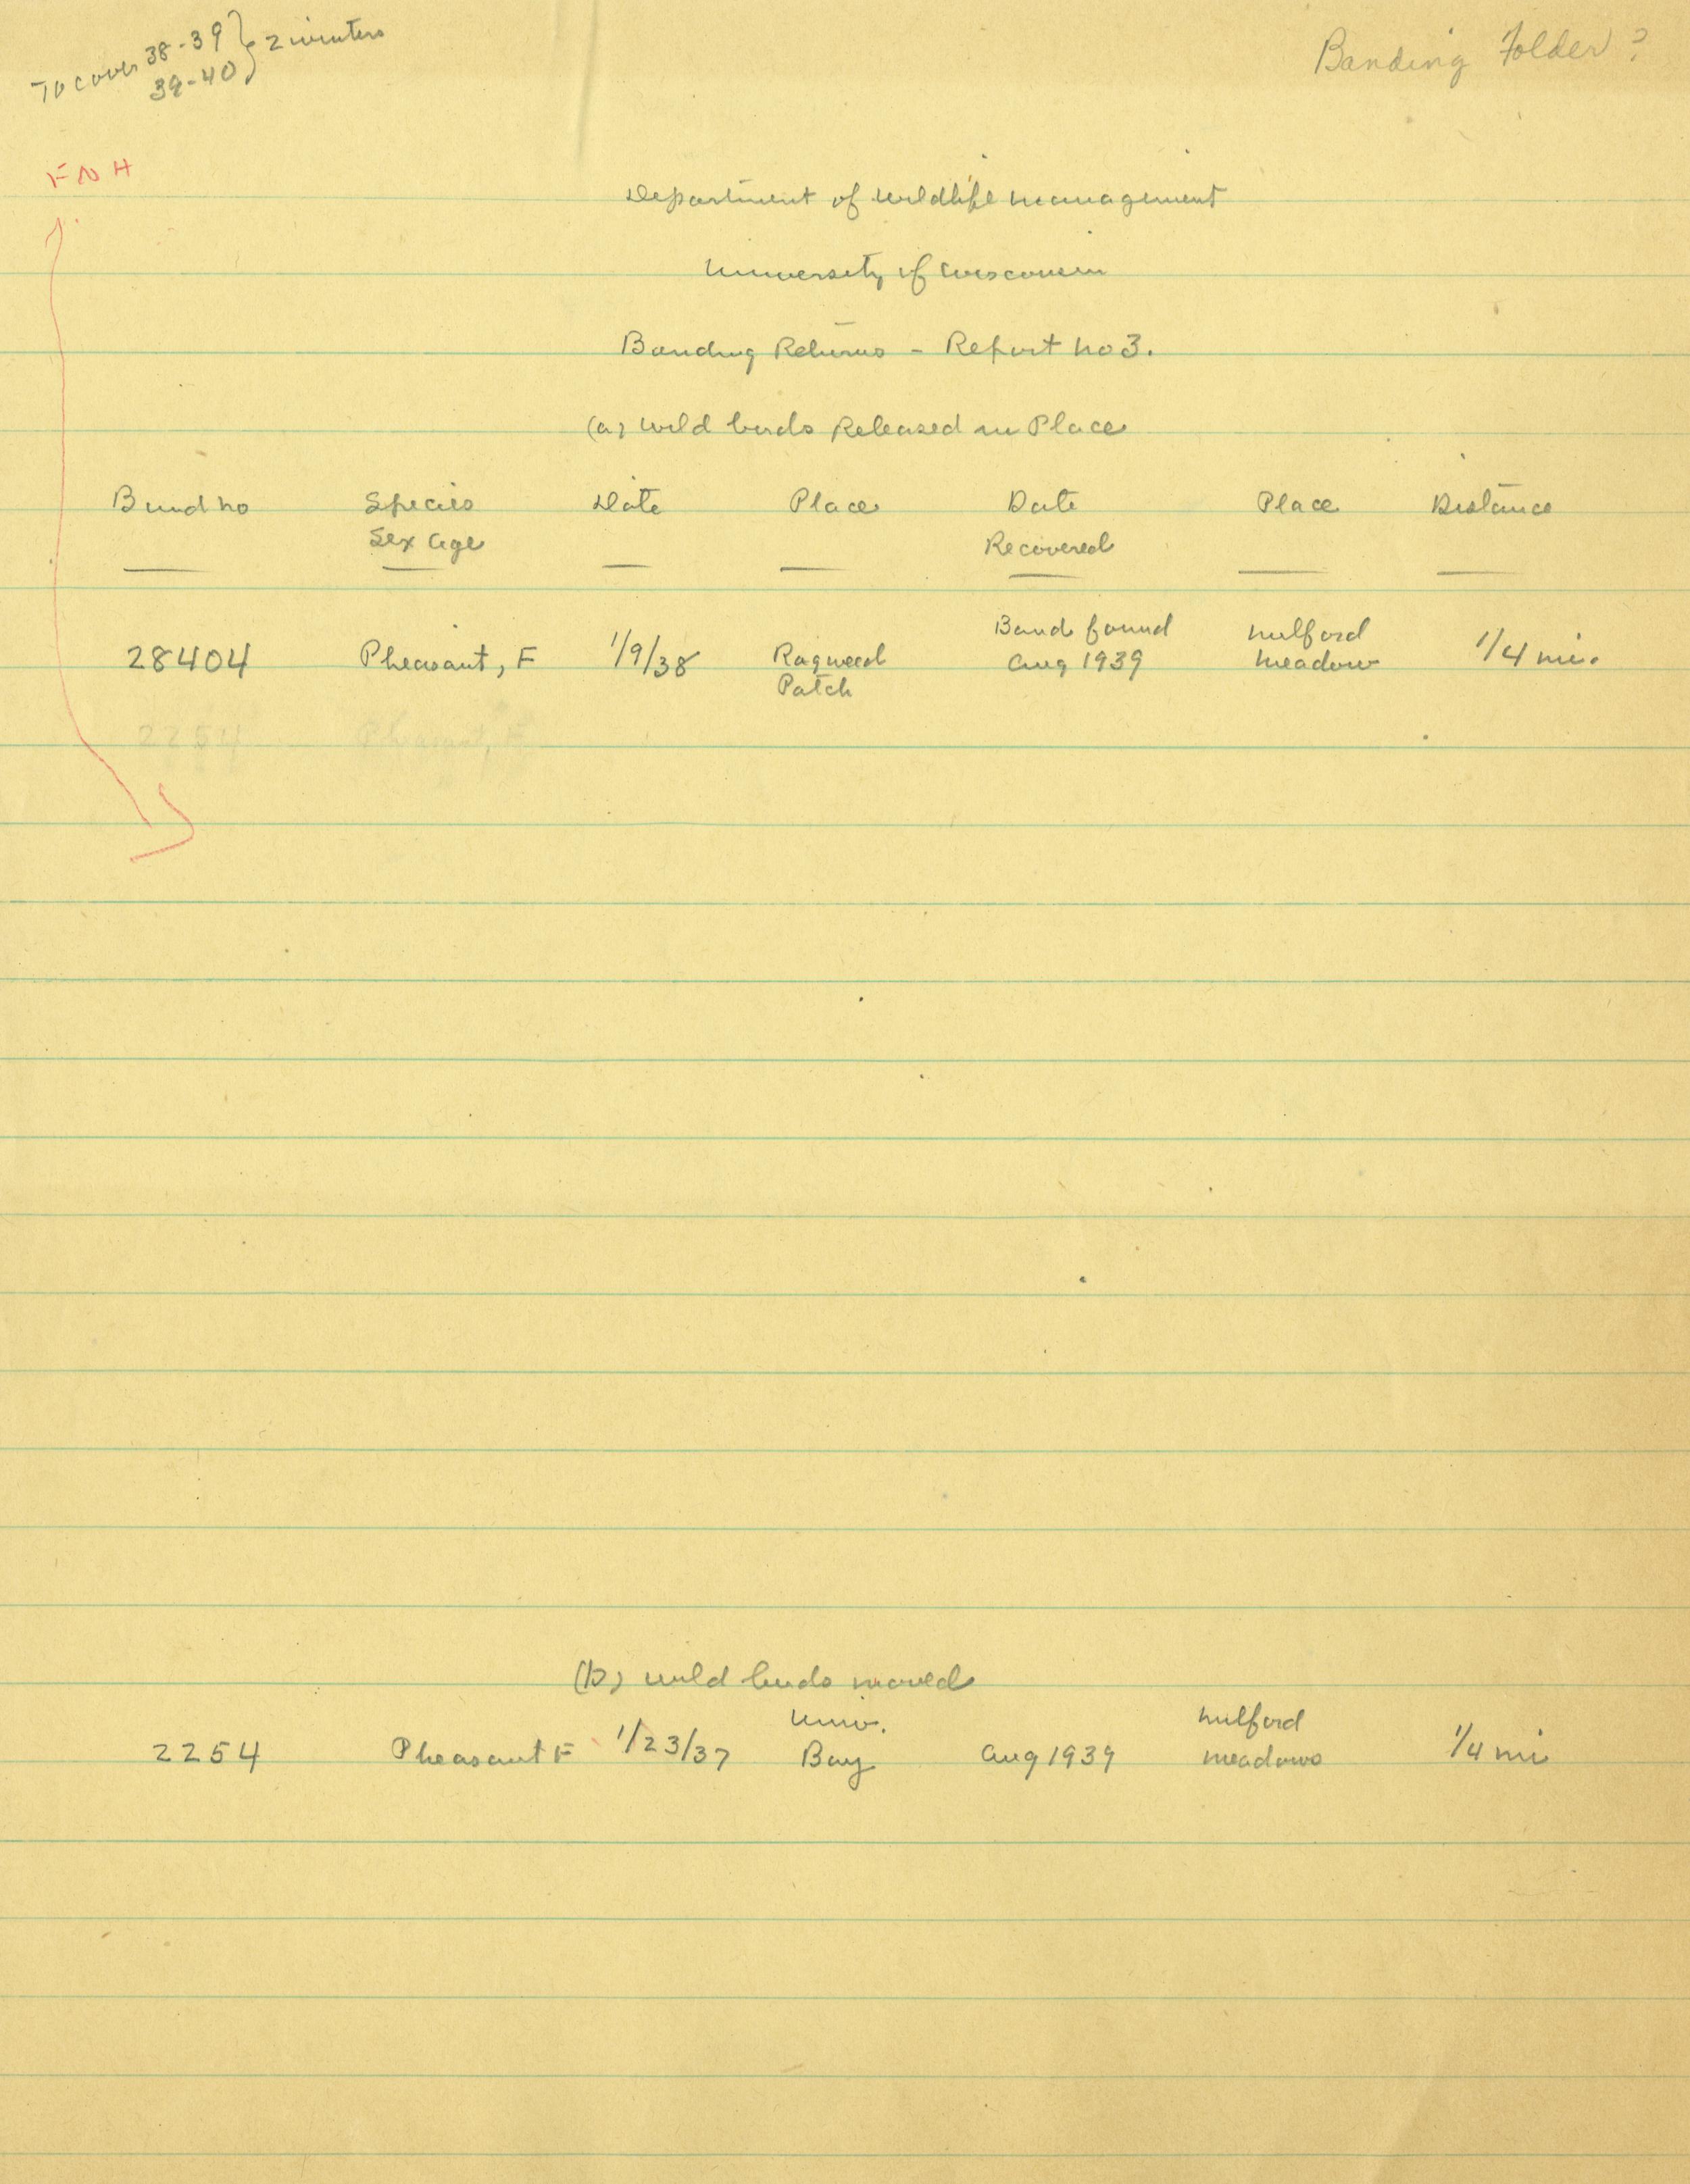 To cover 38-39 } 2 winters
39-40
Banding Folder?
FNH
Department of Wildlife Management
University of Wisconsin
Banding Returns - Report no 3.
(a) Wild birds Released in Place
Band no Species Date Place Date Place Distance
Sex Age Recovered
Band found Milford
28404 Pheasant, F 1/9/38 Ragweed Aug 1939 meadow 1/4 mi.
Patch
2254 Pheasant, F
(b) wild birds moved
Univ. Milford
2254 Pheasant F 1/23/37 Bay Aug 1939 meadows 1/4 mi